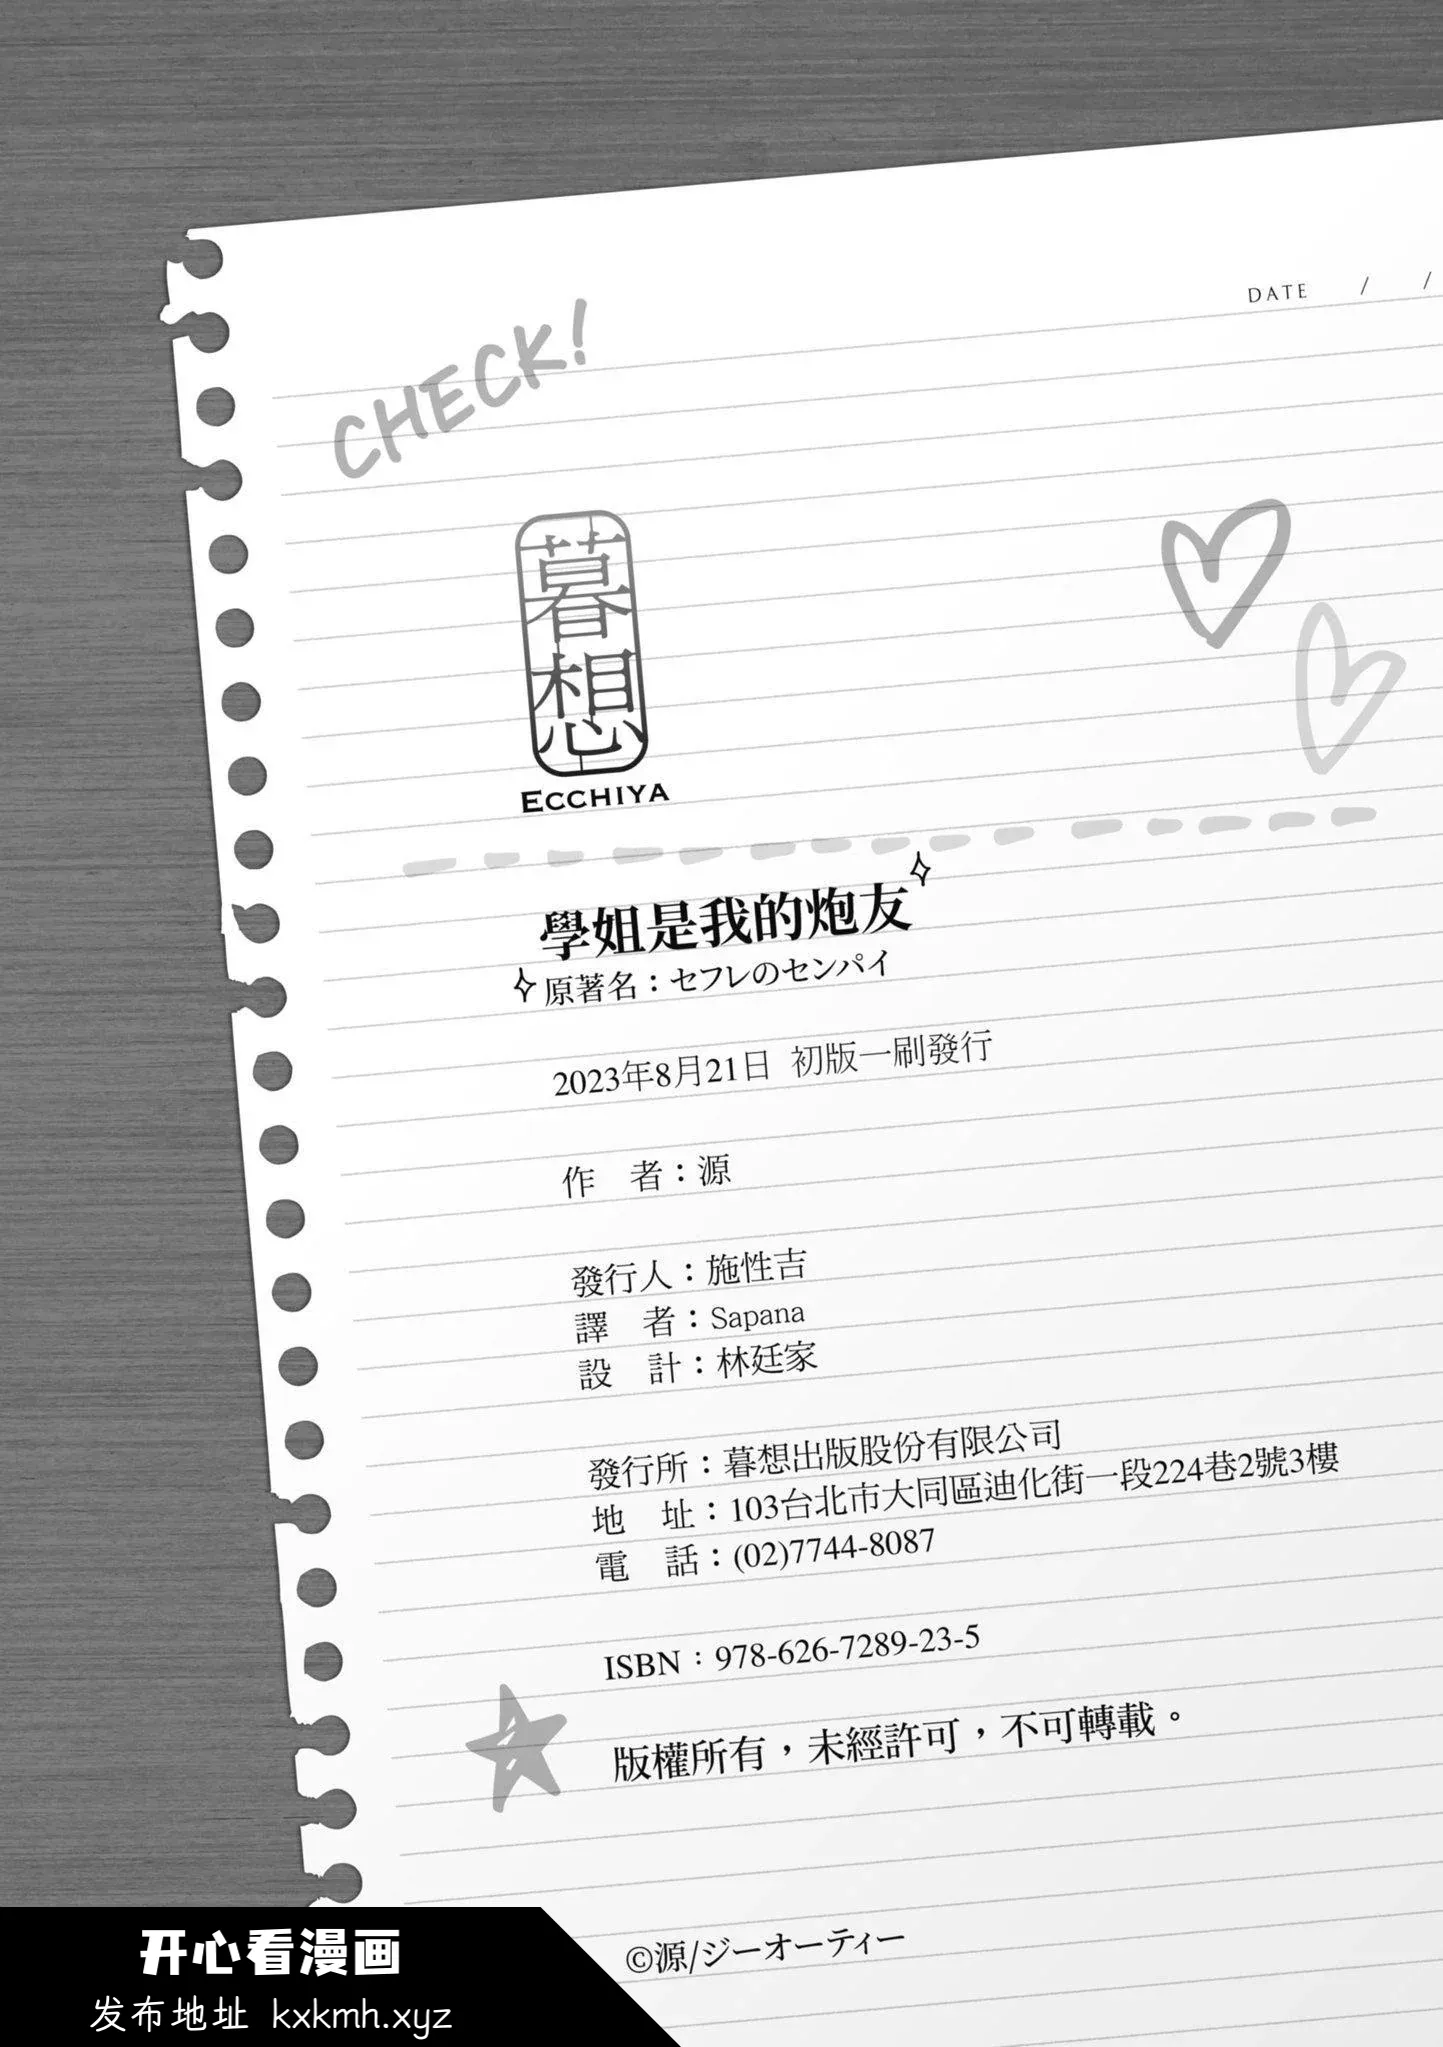 DATE / /
CHECK!
暮想
ECCHIYA
學姐是我的炮友
原著名：セフレのセンパイ
2023年8月21日 初版一刷發行
作 者：源
發行人：施性吉
譯 者：Sapana
設 計：林廷家
發行所：暮想出版股份有限公司
地 址：103台北市大同區迪化街一段224巷2號3樓
電 話：(02)7744-8087
ISBN：978-626-7289-23-5
版權所有，未經許可，不可轉載。
©源/ジーオーティー
开心看漫画
发布地址 kxkmh.xyz